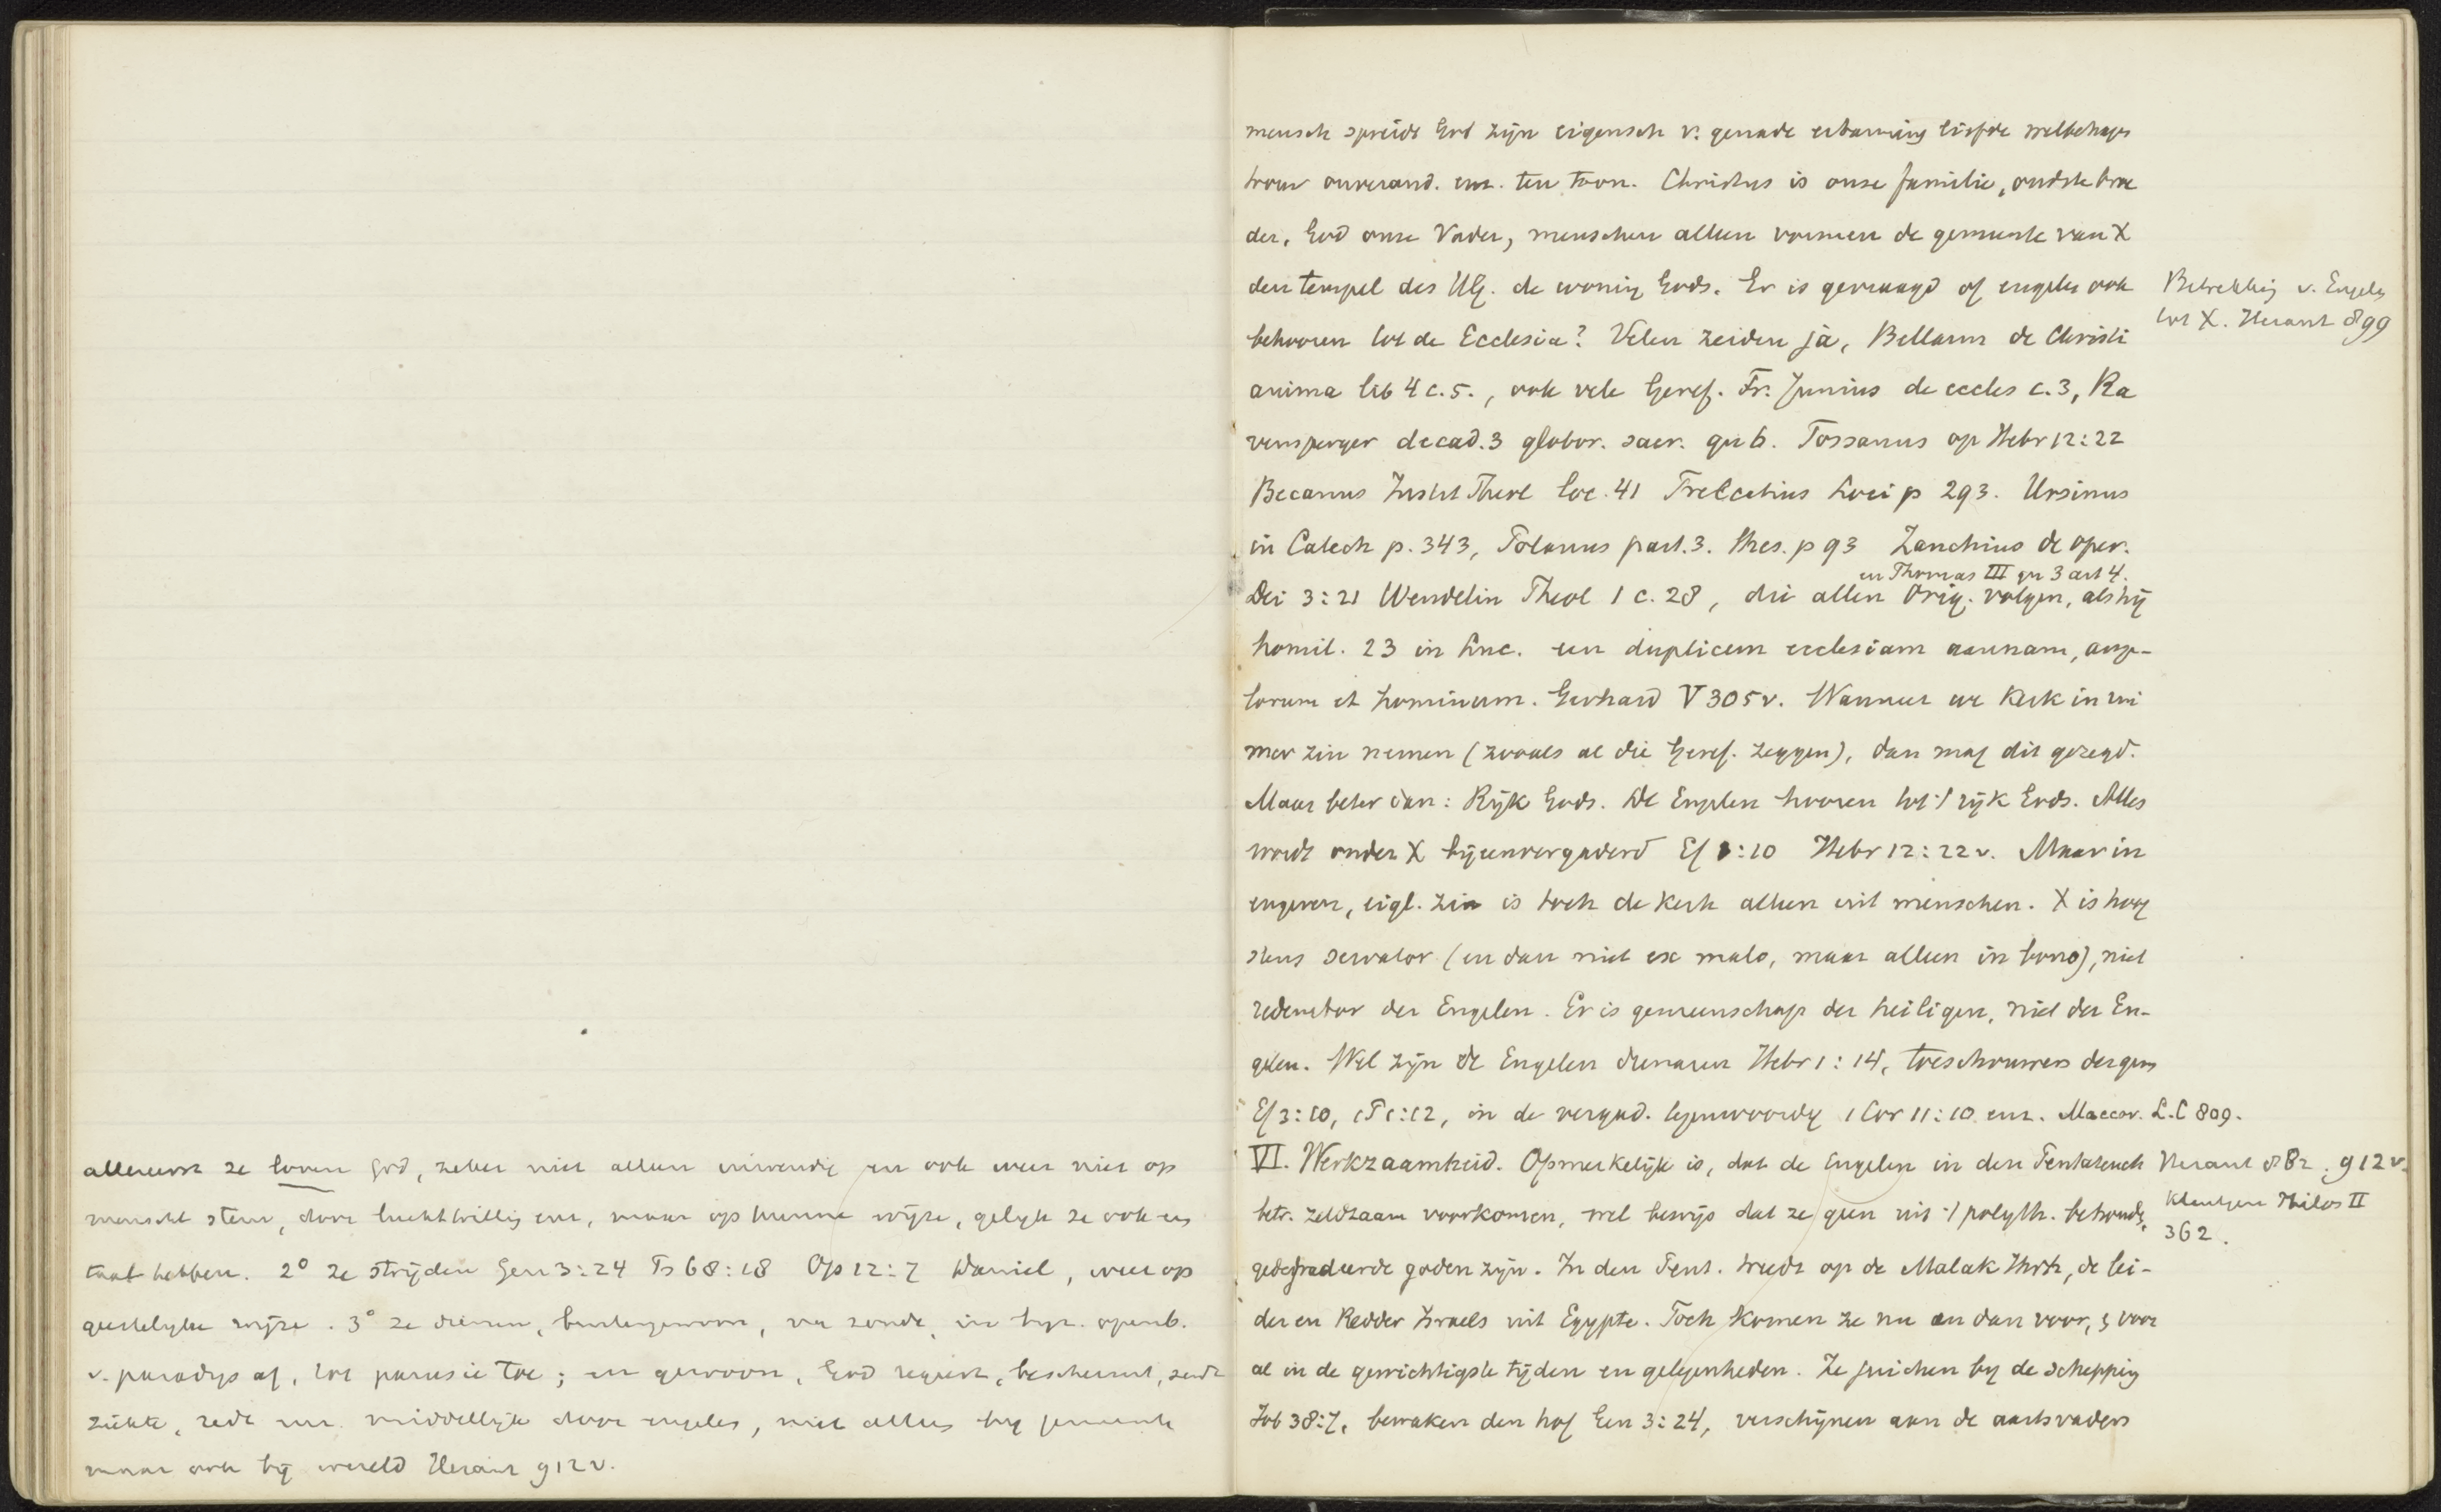 allereerst ze loven God, zeker niet alleen inwendig en ook weer niet op
menschel stem, door luchttrilling enz, maar op hunne wijze, gelijk ze ook een
taal hebben. 2° ze strijden Gen 3:24 Ps 68:18 Op 12:7 Daniel, weer op
geestelyke wijze. 3° ze dienen, buitengewoon, na zonde, in byz. openb.
v. paradys af, tot parusie toe; en gewoon, God regeert, beschermt, zendt
ziekte, redt enz. middellijk door engelen, niet alleen by gemeente
maar ook bij wereld Heraut 912v.
mensch spreidt God zijn eigensch v. genade erbarming liefde welbehagen
trouw onverand. enz. ten toon. Christus is onze familie, oudste broe
der, God onze Vader, menschen alleen vormen de gemeente van X
den tempel des HG. de woning Gods. Er is gevraagd of engelen ook
behooren tot de Ecclesia? Velen zeiden ja, Bellarm de Christi
anima lib 4 c.5., ook vele Geref. Fr. Junius de eccles c.3, Ra
vensperger decad.3 globor. sacr. qu 6. Tossanus op Hebr 12:22
Becanus Instit Theol loc. 41 Trelcatius Loci p 293. Ursinus
in Catech p. 343, Polanus part.3. thes. p 93 Zanchius de oper.
en Thomas III qu 3 art 4.
Dei 3:21 Wendelin Theol 1 c. 28, die allen Orig. volgen, als hij
homil. 23 in Luc. een duplicem ecclesiam aannam, ange-
lorum et hominum. Gerhard V 305v. Wanneer we Kerk in rui
mer zin nemen (zooals al die Geref. zeggen), dan mag dit gezegd.
Maar beter dan: Rijk Gods. De Engelen hooren tot 't rijk Gods. Alles
wordt onder X bijeenvergaderd Ef 1:10 Hebr 12:22v. Maar in
engeren, eigl. zin is toch de Kerk alleen uit menschen. X is hoog
stens servator (en dan niet ex malo, maar alleen in bono), niet
redemtor der Engelen. Er is gemeenschap der heiligen, niet der En-
gelen. Wel zijn de Engelen dienaren Hebr 1:14, toeschouwers der gem
Ef 3:10, 1 P 1:12, in de vergad. tegenwoordig 1 Cor 11:10 enz. Maccov. L.C 809.
VI. Werkzaamheid. Opmerkelijk is, dat de Engelen in den Pentateuch
betr. zeldzaam voorkomen, wel bewijs dat ze geen uit 't polyth. behoude,
gedegradeerde goden zijn. In den Pent. treedt op de Malak Jhvh, de lei-
der en Redder Israels uit Egypte. Toch komen ze nu en dan voor, & voor
al in de gewichtigste tijden en gelegenheden. Ze juichen by de schepping
Job 38:7, bewaken den hof Gen 3:24, verschijnen aan de aartsvaders
Betrekking v. Engelen
tot X. Heraut 899
Heraut 882. 912v.
Kleutgen Philos II
362.